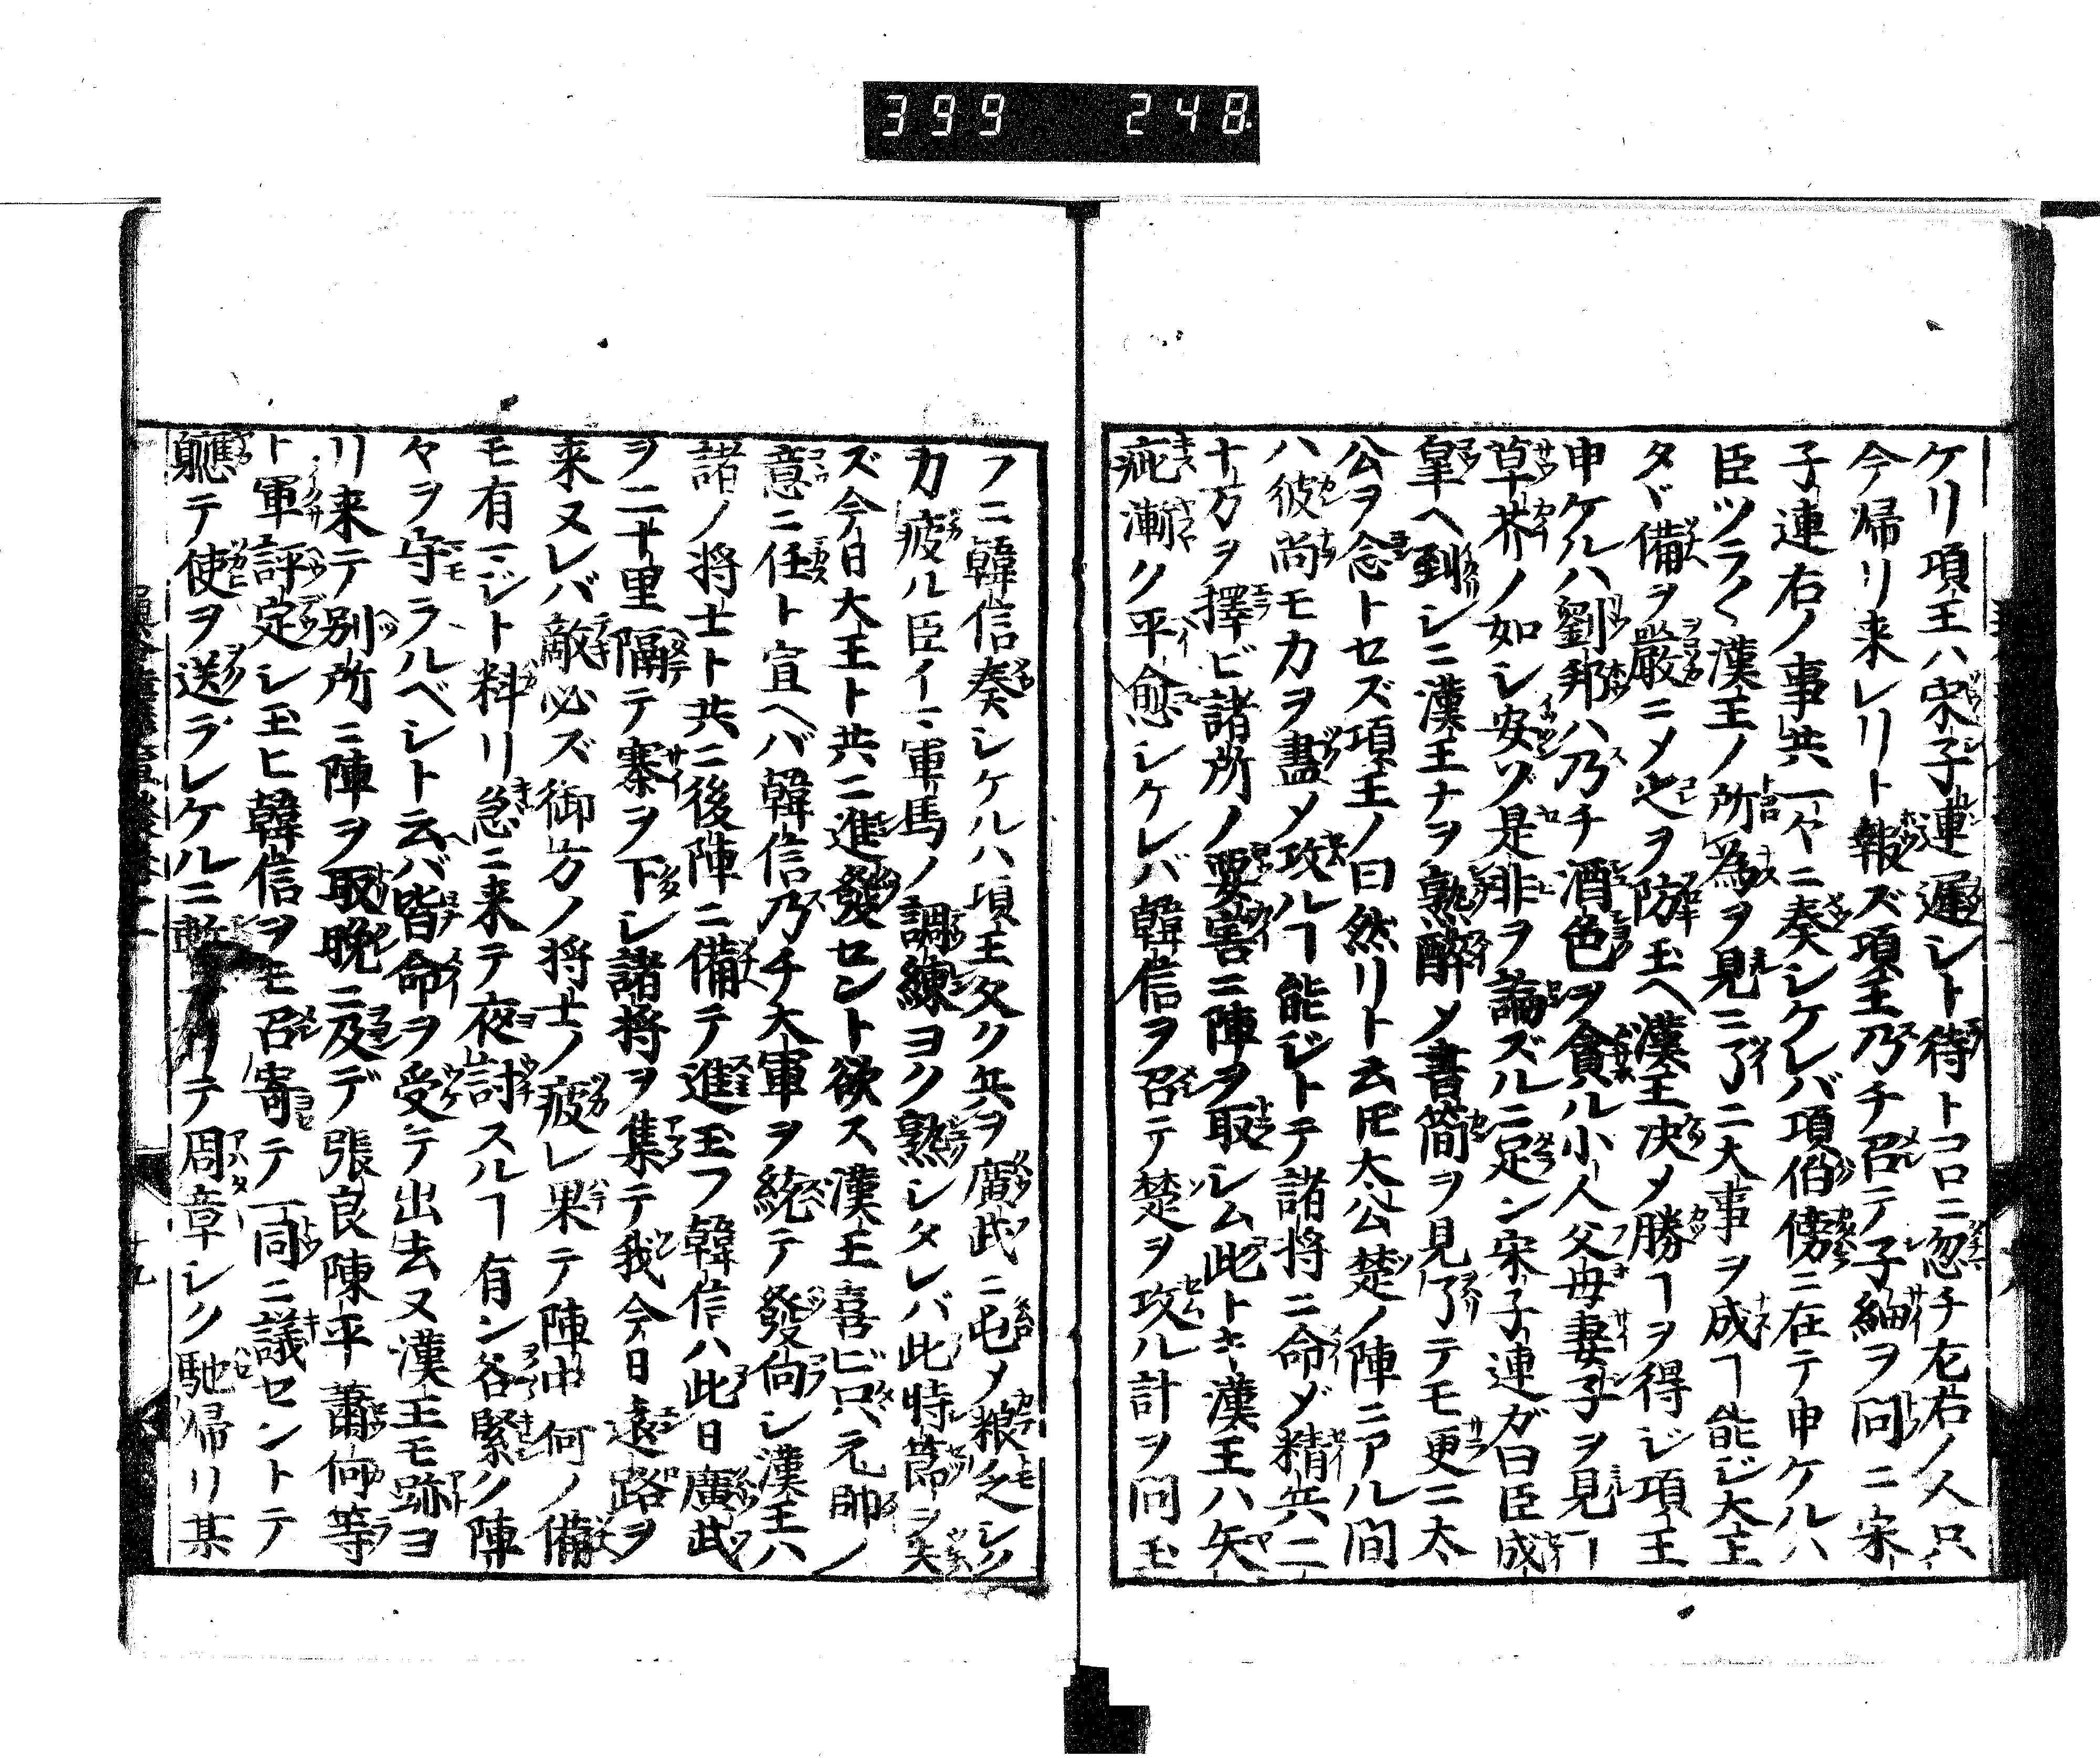 399 248
ケリ項王ハ宋子連遲シト待トコロニ忽チ左右ノ人只
今帰リ来レリト報ズ項王乃チ召テ子細ヲ問ニ宋
子連右ノ事共一々ニ奏シケレバ項伯傍ニ在テ申ケルハ
臣ツラ〱漢王ノ所為ヲ見ニ了ニ大事ヲ成ヿ能ジ大王
タヾ備ヲ嚴ニメ之ヲ防玉ヘ漢王决メ勝ヿヲ得ジ項王
申ケルハ劉邦ハ乃チ酒色ヲ貪ル小人父母妻子ヲ見ヿ
草芥ノ如シ安ゾ是非ヲ論ズルニ足ン宋子連ガ曰臣成
皐ヘ到シニ漢王ナヲ熟醉メ書簡ヲ見了テモ更ニ太
公ヲ念トセズ項王ノ曰然リト云𪜈太公楚ノ陣ニアル間
ハ彼尚モ力ヲ盡メ攻ルヿ能ジトテ諸将ニ命ゾ精兵二
十万ヲ擇ビ諸所ノ要害ニ陣ヲ取シム此トキ漢王ハ矢
疵漸ク平愈シケレバ韓信ヲ召テ楚ヲ攻ル計ヲ問玉
フニ韓信奏シケルハ項王久ク兵ヲ廣武ニ屯メ粮乏シク
力疲ル臣イマ軍馬ノ調練ヨク熟シタレバ此時節ヲ失
ズ今日大王ト共ニ進發セント欲ス漢王喜ビ只元帥ノ
意ニ任ト宣ヘバ韓信乃チ大軍ヲ統テ發向シ漢王ハ
諸ノ将士ト共ニ後陣ニ備テ進玉フ韓信ハ此日廣武
ヲ二十里隔テ寨ヲ下シ諸将ヲ集テ我今日遠路ヲ
来ヌレバ敵必ズ御方ノ将士ノ疲レ果テ陣中何ノ備
モ有マジト料リ急ニ来テ夜討スルヿ有ン各緊ク陣
々ヲ守ラルベシト云バ皆命ヲ受テ出去ヌ漢王モ跡ヨ
リ来テ別所ニ陣ヲ取晩ニ及デ張良陳平蕭何等
ト軍評定シ玉ヒ韓信ヲモ召寄テ一同ニ議セントテ
軈テ使ヲ送ラレケルニ暫アリテ周章シク馳帰リ某